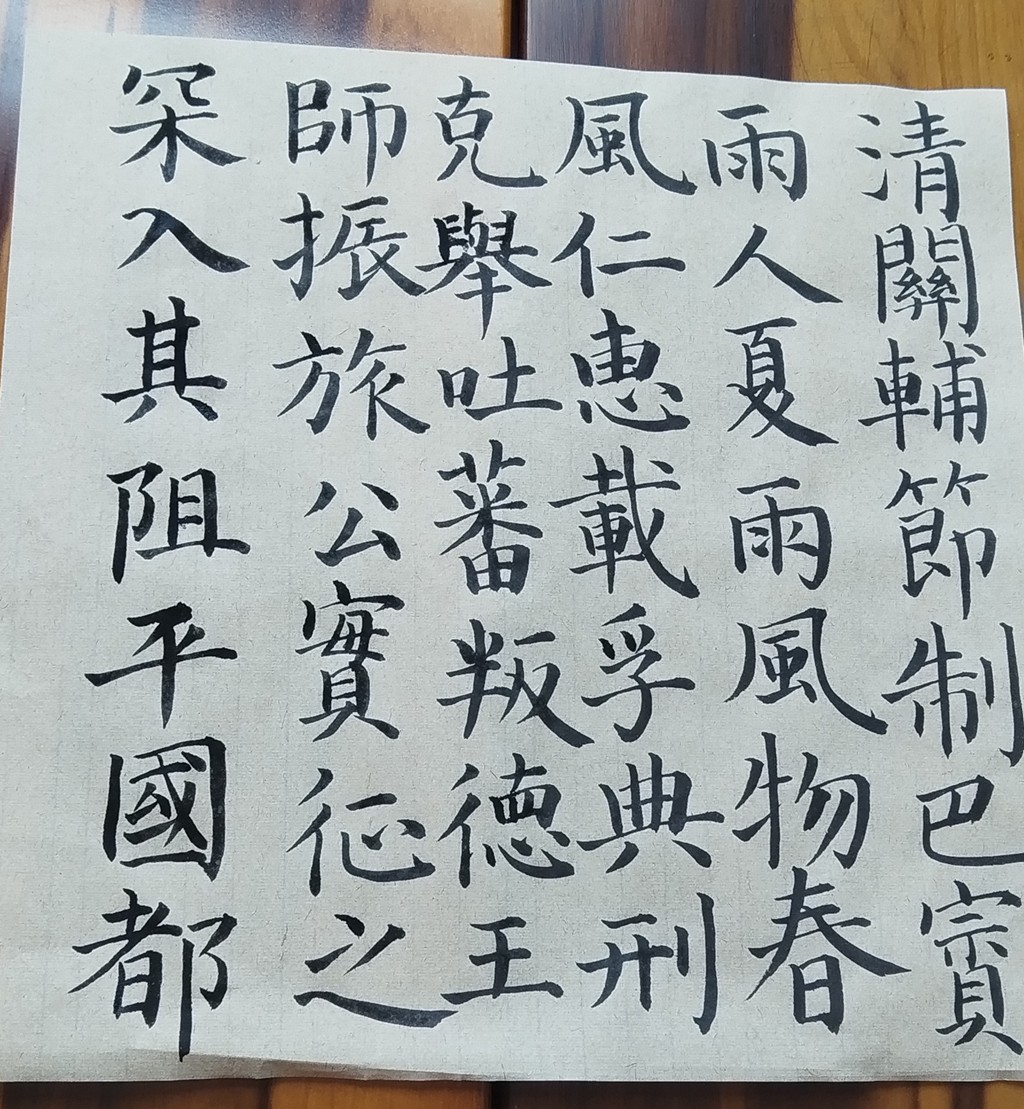 清關輔節制巴賓
雨人夏雨風物春
風仁惠載孚典刑
克舉吐蕃叛德王
師振旅公實征之
罙入其阻平國都